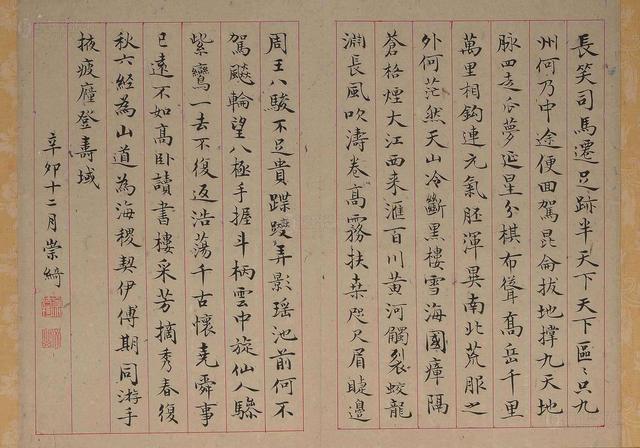 長笑司馬遷足跡半天下天下區〻只九
州何乃中途便回駕昆侖拔地撐九天地
脉四走吞夢延星分棋布聳高岳千里
萬里相鈎連元氣胚渾異南北荒服之
外何茫然天山冷斷黑樓雪海國瘴隔
蒼梧煙大江西来滙百川黄河觸裂蛟龍
淵長風吹濤卷高霧扶桑咫尺眉睫邊
周王八駿不足貴蹀躞弄影瑶池前何不
駕飈輪望八極手握斗柄雲中旋仙人驂
紫鸞一去不復返浩蕩千古懷堯舜事
已遠不如高卧讀書樓采芳摘秀春復
秋六经為山道為海稷契伊傅期同游手
掖疲癃登壽域
辛卯十二月崇綺